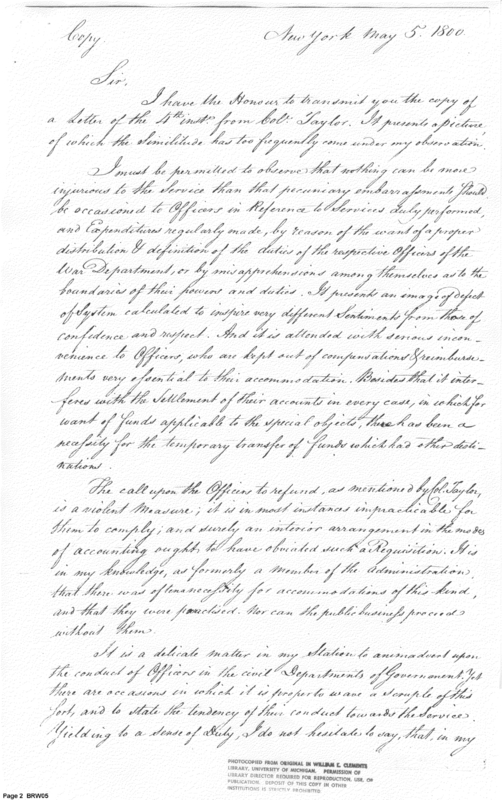 Copy.
New York May 5. 1800.
Sir.
I have the Honour to transmit you the copy of
a Letter of the 4th inst. from Col. Taylor. It presents a picture,
of which the Similitude has too frequently come under my observation.
I must be permitted to observe that nothing can be more
injurious to the Service than that pecuniary embarrassments should
be occasioned to Officers in Reference to Services duly performed,
and Expenditures regularly made, by reason of the want of a proper
distribution & definition of the duties of the respective Officers of the
War Department, or by misapprehensions among themselves as to the
boundaries of their powers and duties. It presents an image of defect
of System calculated to inspire very different Sentiments from those of
confidence and respect. And it is attended with serious incon-
venience to Officers, who are kept out of compensations & reimburse-
ments very essential to their accommodation. Besides that it inter-
feres with the Settlement of their accounts in every case, in which for
want of funds applicable to the special objects, there has been a
necessity for the temporary transfer of funds which had other desti-
nations.
The call upon the Officers to refund, as mentioned by Col. Taylor,
is a violent measure; it is in most instances impracticable for
them to comply; and surely an interior arrangement in the modes
of accounting ought to have obviated such a Requisition. It is
in my knowledge, as formerly a member of the Administration,
that there was often a necessity for accommodations of this kind,
and that they were practised. Nor can the public business proceed
without them.
It is a delicate matter in my Station to animadvert upon
the conduct of Officers in the civil Departments of Government. Yet
there are occasions in which it is proper to wave a scruple of this
sort, and to state the tendency of their conduct towards the Service.
Yielding to a sense of Duty, I do not hesitate to say, that, in my
PHOTOCOPIED FROM ORIGINAL IN WILLIAM L. CLEMENTS
LIBRARY, UNIVERSITY OF MICHIGAN. PERMISSION OF
LIBRARY DIRECTOR REQUIRED FOR REPRODUCTION, USE, OR
PUBLICATION. DEPOSIT OF THIS COPY IN OTHER
INSTITUTIONS IS STRICTLY PROHIBITED
Page 2 BRW05